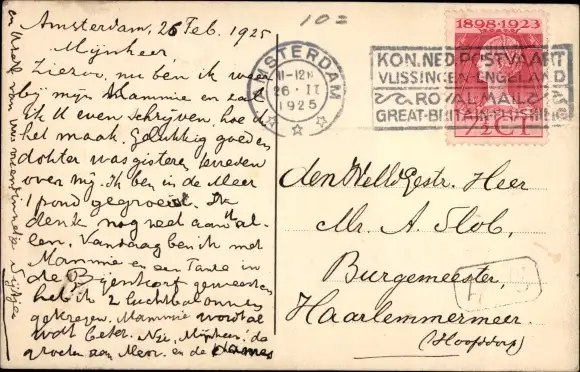 Amsterdam, 26 Feb. 1925
Mijnheer,
Ziezoo, nu ben ik weer
bij mijn Mammie en zal
ik U even schrijven, hoe ik
het maak. Gelukkig goed en
dokter was gisteren tevreden
over mij. Ik ben in de Meer
1 pond gegroeid. Ik
denk nog veel aan U al-
len. Vandaag ben ik met
Mammie en een Tante in
de Bijenkorf geweest en
heb ik 2 luchtballonnen
gekregen. Mammie wordt al
wat beter. Nu, Mijnheer, de
groeten aan Mevr. en de dames
en van uw vriendinnetje
10=
1898-1923
7½ CT
AMSTERDAM
11-12
26 · II
1925
KON. NED. POSTVAART
VLISSINGEN-ENGELAND
ROYAL MAIL
GREAT-BRITAIN-FLUSHING
den WelEd.Gestr. Heer
Mr. A. Slob,
Burgemeester,
Haarlemmermeer.
(Hoofddorp)